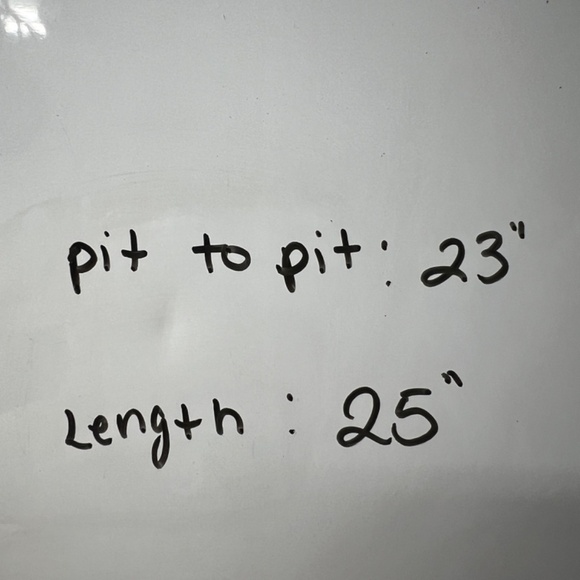 pit to pit: 23"
Length: 25"